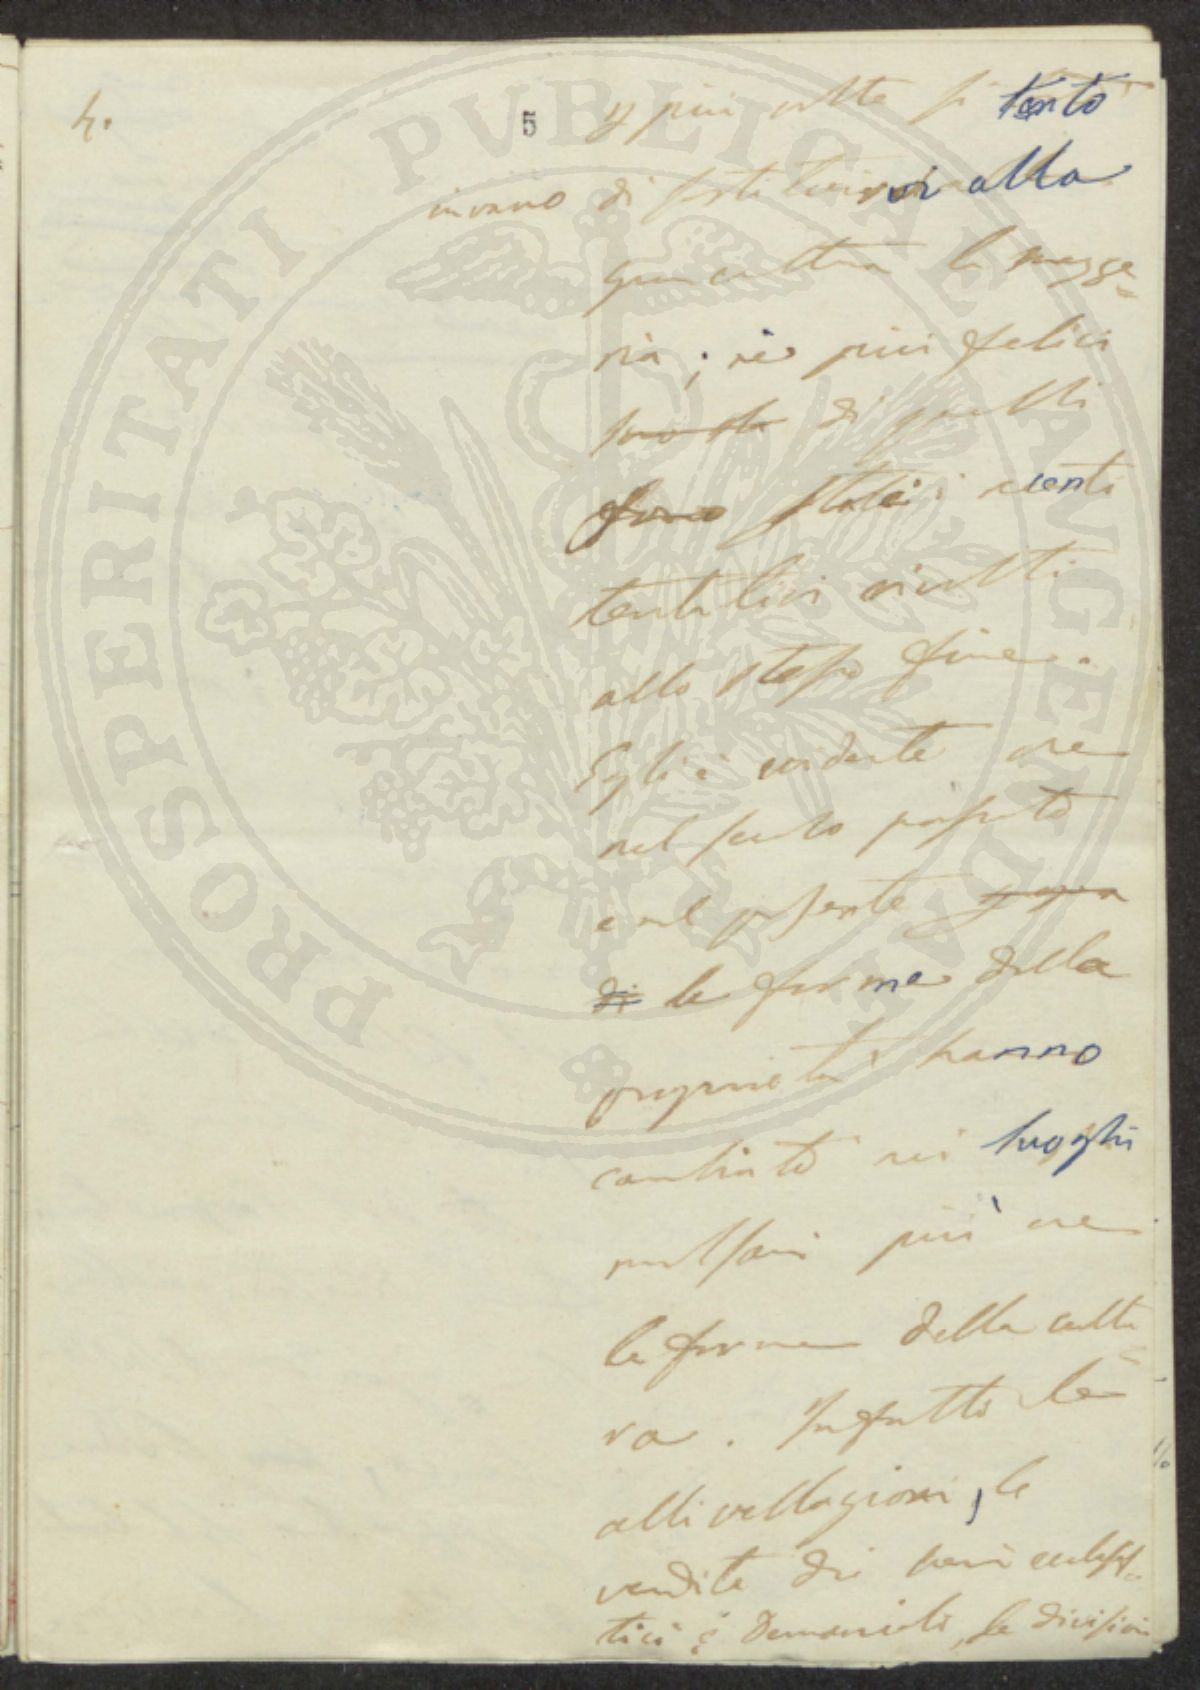 4.
5
e più volte si tentò
invano di sostituirvi alla
gran cultura la mezze=
ria; nè più felici
di quelli
furono stati i recenti
tentativi rivolti
allo stesso fine.
Egli è evidente che
nel secolo passato
e nel presente
di le forme della
proprietà hanno
cambiato nei luoghi
malsani più che
le forme della cultu=
ra. Infatti le
allivellazioni, le
vendite dei beni ecclesias=
tici e Demaniali, le divisioni
PROSPERITATI PVBLICAE AVGENDAE